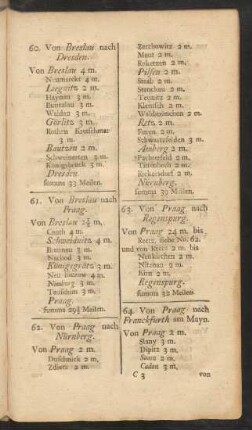 60. Von Breslau nach
Dresden.
Von Breslau 4 m.
Neumarckt 4 m.
Liegnitz 2 m.
Haynau 3 m.
Buntzlau 3 m.
Waldau 3 m.
Görlitz 3 m.
Rothen Kretschmar
3 m.
Bautzen 2 m.
Schweinerten 3 m.
Königsbrück 3 m.
Dresden
summa 33 Meilen.
61. Von Breslau nach
Praag.
Von Breslau m.
Schweidnitz 4 m.
Braunau 3 m.
Nachod 3 m.
Königsgrätz 3 m.
Nimburg 3 m.
Praag.
summa Meilen.
62. Von Praag nach
Nürnberg.
Von Praag 2 m.
Duschnick 2 m.
Zditz 2 m.
2 m.
Maut 2 m.
Rokitzen 2 m.
Pilsen 2 m.
Staab 2 m.
Stanckau 2 m.
Teinitz 2 m.
Klentsch 2 m.
Waldmünchen 2 m.
Retz 2 m.
2 m.
Schwartzfelden 3 m.
Amberg 2 m.
2 m.
2 m.
2 m.
Nürnberg.
summa 39 Meilen.
63. Von Praag nach
Regenspurg.
Von Praag 24 m. bis
Retz, siehe No. 62.
und von Retz 2 m. bis
Neukirchen 2 m.
Nittenau 2 m.
2 m.
Regenspurg.
summa 32 Meilen
64. Von Praag nach
Franckfurth am Mayn.
Von Praag 2 m.
Slany 3 m.
3 m.
Satz 2 m.
Caden 3 m.
C 3 von